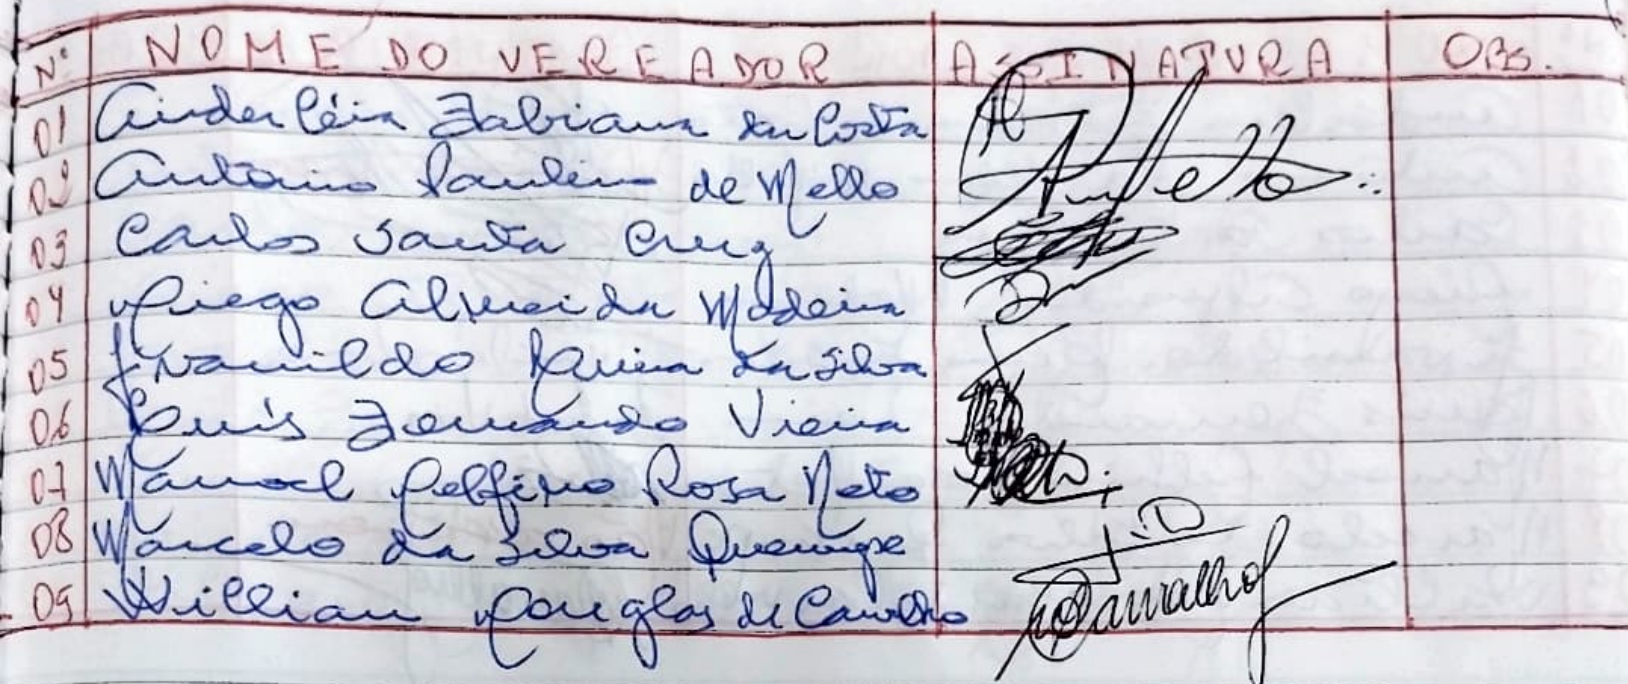 Nº NOME DO VEREADOR ASSINATURA OBS.
01 Cinderléia Fabiana da Costa
02 Antonio Paulino de Mello
03 Carlos Santa Cruz
04 Diego Almeida Madeira
05 Ivanildo da Silva
06 Luís Fernando Vieira
07 Manoel Delfino Rosa Neto
08 Marcelo da Silva
09 Willian Douglas de Carvalho Carvalho